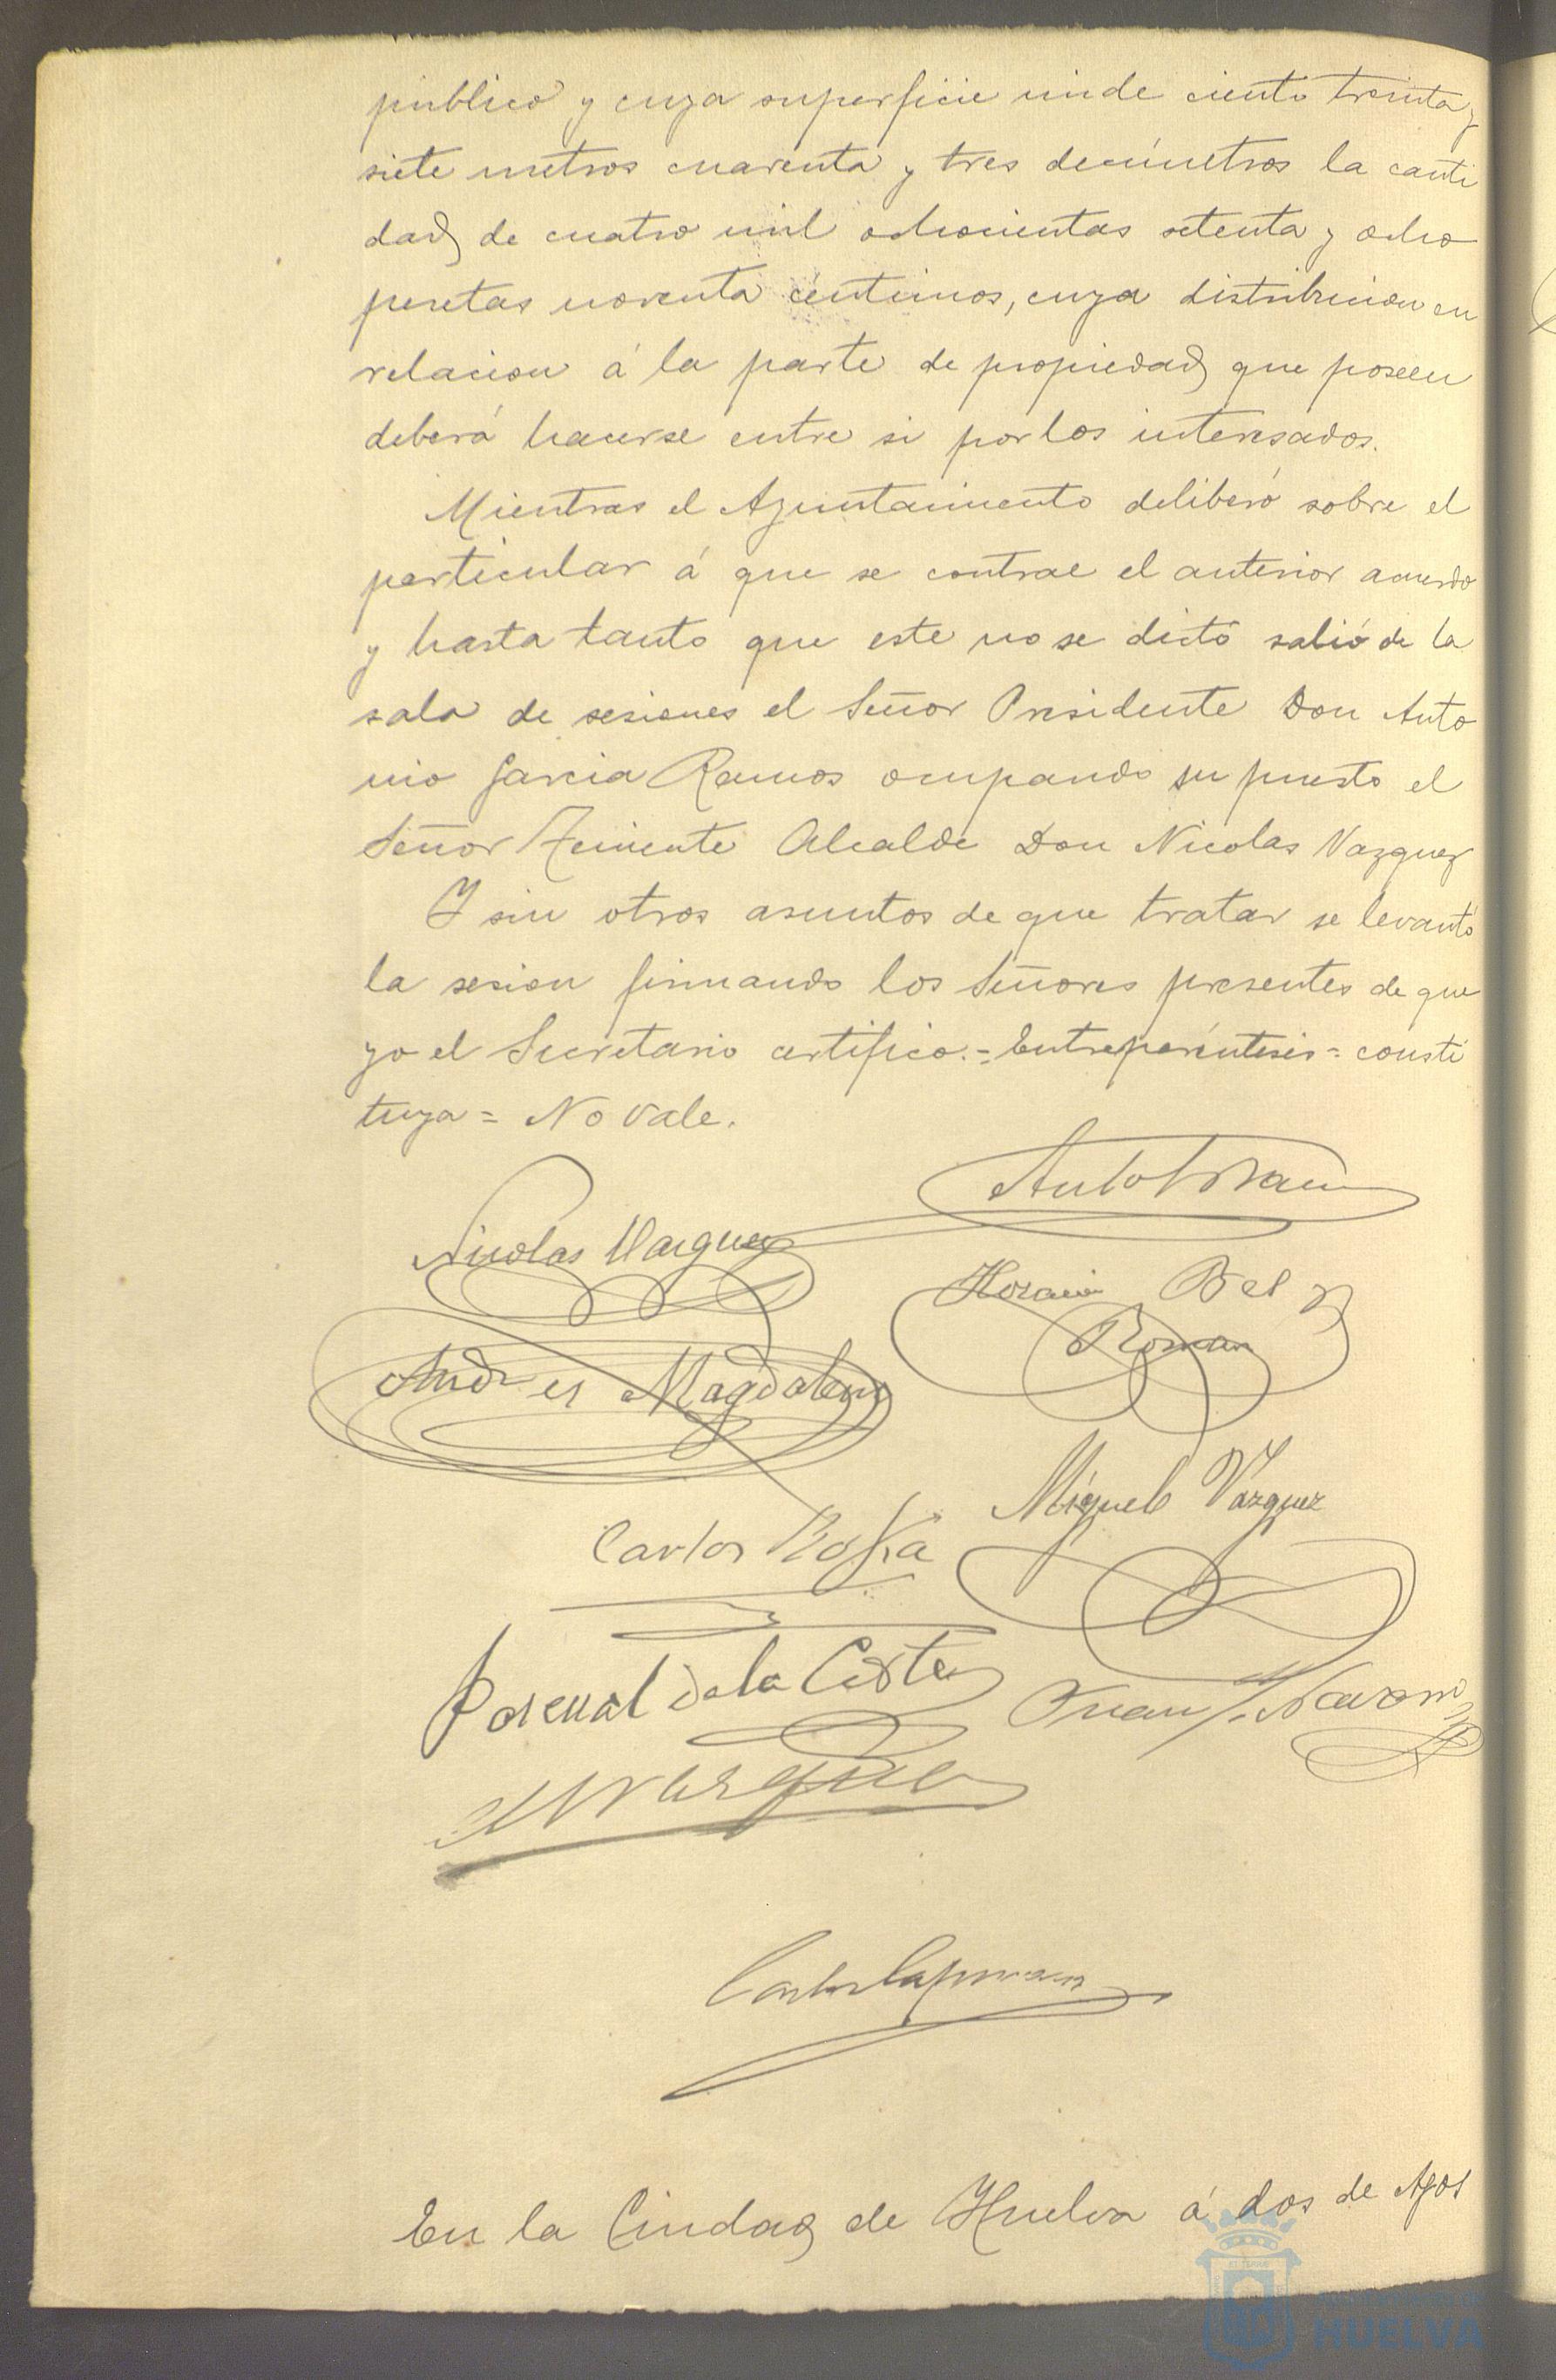 publico y cuya superficie mide ciento treinta y
siete metros cuarenta y tres decímetros la canti
dad de cuatro mil ochocientas setenta y ocho
pesetas noventa céntimos, cuya distribucion en
relacion á la parte de propiedad que poseen
deberá hacerse entre si por los interesados.
Mientras el Ayuntamiento deliberó sobre el
particular á que se contrae el anterior acuerdo
y hasta tanto que este no se dictó salió de la
sala de sesiones el Señor Presidente Don Anto
nio Garcia Ramos ocupando su puesto el
Señor Teniente Alcalde Don Nicolas Vazquez
Y sin otros asuntos de que tratar se levantó
la sesion firmando los Señores presentes de que
yo el Secretario certifico.= Entreparéntesis = consti
tuya = No vale.
Nicolas Vazquez
Horacio Bel
Roman
Andres Magdalena
Miguel Vázquez
Carlos
Pascual de la Corte
Juan Navarro
Vazquez
En la Ciudad de Huelva á dos de Agos
HUELVA